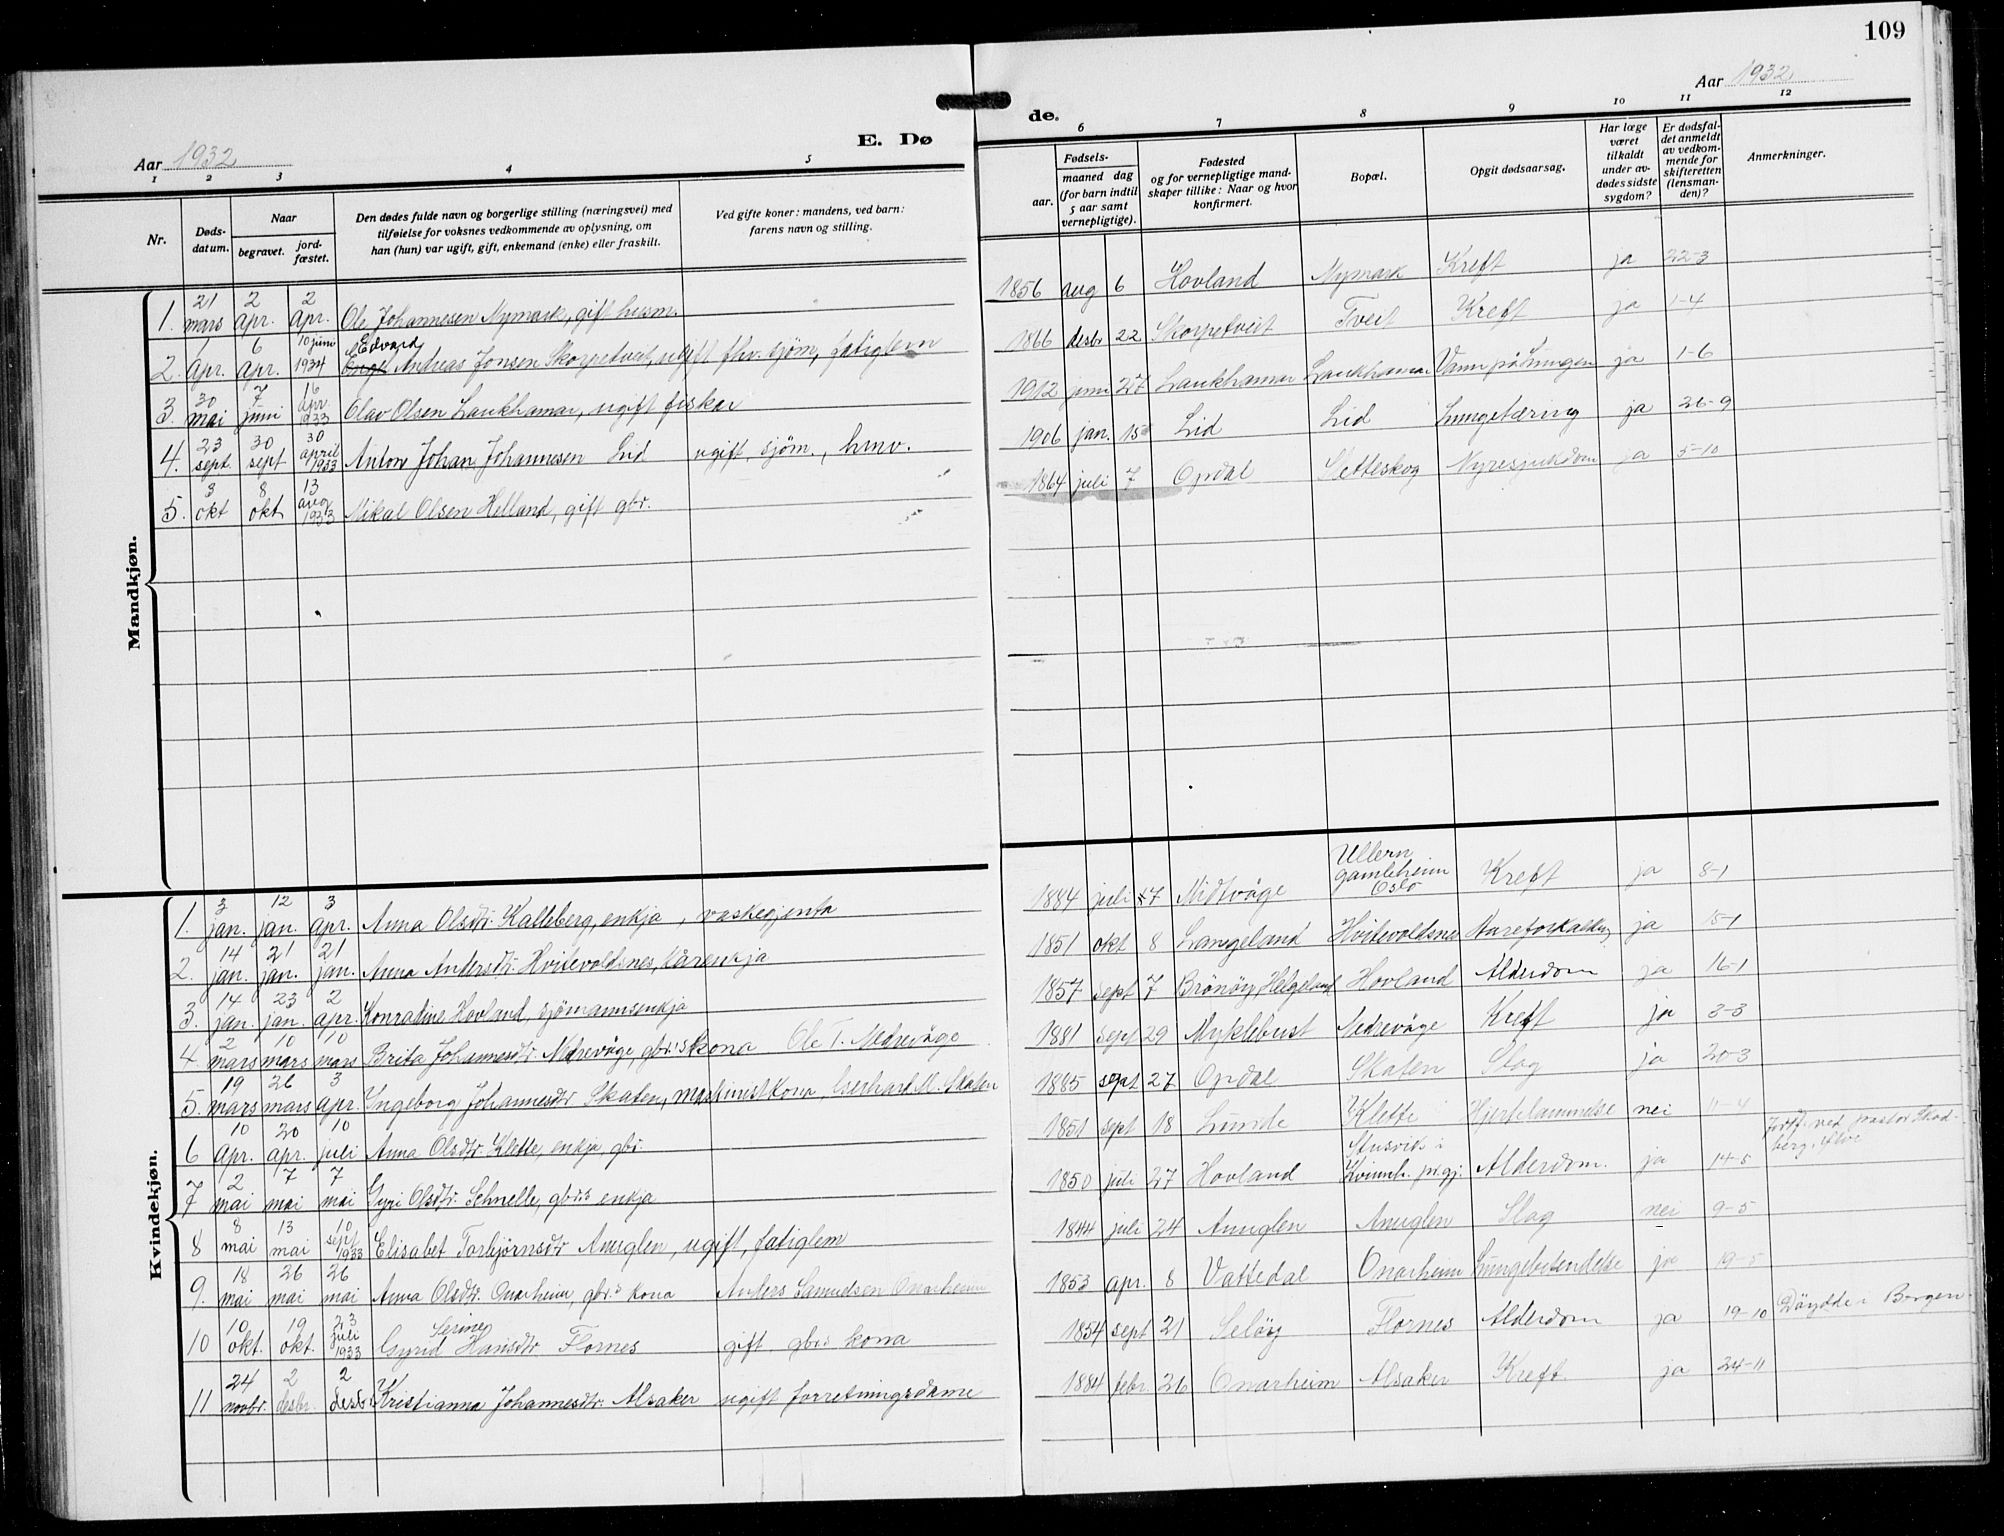 109
Aar 1932
Aar 1932
E. Dø
de.
1 2 3 4 5
6 7 8 9 10 11 12
Nr.
Døds-
datum.
Naar
begravet.
jord-
fæstet.
Den dødes fulde navn og borgerlige stilling (næringsvei) med
tilføielse for voksnes vedkommende av oplysning, om
han (hun) var ugift, gift, enkemand (enke) eller fraskilt.
Ved gifte koner: mandens, ved barn:
farens navn og stilling.
Fødsels-
aar.
maaned dag
(for barn indtil
5 aar samt
vernepligtige).
Fødested
og for vernepligtige mand-
skaper tillike: Naar og hvor
konfirmert.
Bopæl.
Opgit dødsaarsag.
Har læge
været
tilkaldt
under av-
dødes sidste
sygdom?
Er dødsfal-
det anmeldt
av vedkom-
mende for
skifteretten
(lensman-
den)?
Anmerkninger.
Mandkjøn.
1. 21 mars 2 apr. 2 apr. Ole Johannesen Nymark, gift husm. 1856 aug 6 Hovland Nymark Kreft ja 22-3
2. 1 apr. 6 apr. 10 juni 1934 Edvard Andreas Jonsen Skorpetveit, ugift fhv. sjøm, fatiglem 1866 desbr 22 Skorpetveit Tveit Kreft ja 1-4
3. 30 mai 7 juni 16 apr. 1933 Olav Olsen Laukhamar, ugift fiskar 1912 juni 27 Laukhamar Laukhamar Vann på Lungen ja 1-6
4. 23 sept. 30 sept 30 april 1933 Anton Johan Johannesen Lid ugift, sjöm., hmv. 1906 jan. 15 Lid Lid Lungetæring ja 26-9
5. 3 okt 8 okt 13 aug 1933 Mikal Olsen Helland, gift gbr. 1864 juli 7 Opdal Sletteskog Nyresjukdom ja 5-10
Kvindekjøn.
1. 3 jan. 12 jan. 3 apr. Anna Olsdtr. Kalleberg, enkja, vaskegjenta 1884 juli 7 Midtvåge Ullern gamleheim Oslo Kreft ja 8-1
2. 14 jan. 21 jan. 21 jan. Anna Andersdtr. Hvitevoldsnes, kårenkja 1851 okt 8 Langeland Hvitevoldsnes Aareforkalkng ja 15-1
3. 14 jan. 23 jan. 2 apr. Konradine Hovland, sjömannsenkja 1857 sept 7 Brönöy, Helgeland Hovland Alderdom ja 16-1
4. 2 mars 10 mars 10 mars Brita Johannesdtr. Nedrevåge, gbr.s kona Ole T. Nedrevåge 1881 sept 29 Myklebust Nedrevåge Kreft ja 3-3
5. 19 mars 26 mars 3 apr. Ingeborg Johannesdtr Skaten, maskinistkona Gerhard M. Skaten 1885 sept 27 Opdal Skaten Slag ja 20-3
6 10 apr. 20 apr. 10 juli Anna Olsdtr. Klette, enkja gbr. 1851 sept 18 Lunde Klette Hjertelammelse nei 11-4
7 2 mai 7 mai 7 mai Gyri Olsdtr. Schnelle, gbr.s enkja 1850 juli 27 Hovland i Kvinnh. pr.gj. Alderdom. ja 14-5 Jordf. ved pastor Skadberg, Etne
8 8 mai 13 mai 10 sept 1933 Elisabet Torbjörnsdtr Anuglen, ugift, fatiglem 1844 juli 24 Anuglen Anuglen Slag nei 9-5
9. 18 mai 26 mai 26 mai Anna Olsdtr. Onarheim, gbr.s kona Anders Samuelsen Onarheim 1853 apr. 8 Vattedal Onarheim Lungebetendelse ja 19-5
10 10 okt. 19 okt. 23 juli 1933 Gyrid Serine Hansdtr Flornes gift, gbr.s kona 1854 sept 21 Selöy Flornes Alderdom ja 19-10 Döydde i Bergen.
11 24 novbr. 2 desbr. 2 desbr Kristianna Johannesdtr. Alsaker ugift forretningsdame 1884 febr. 26 Onarheim Alsaker Kreft ja 24-11